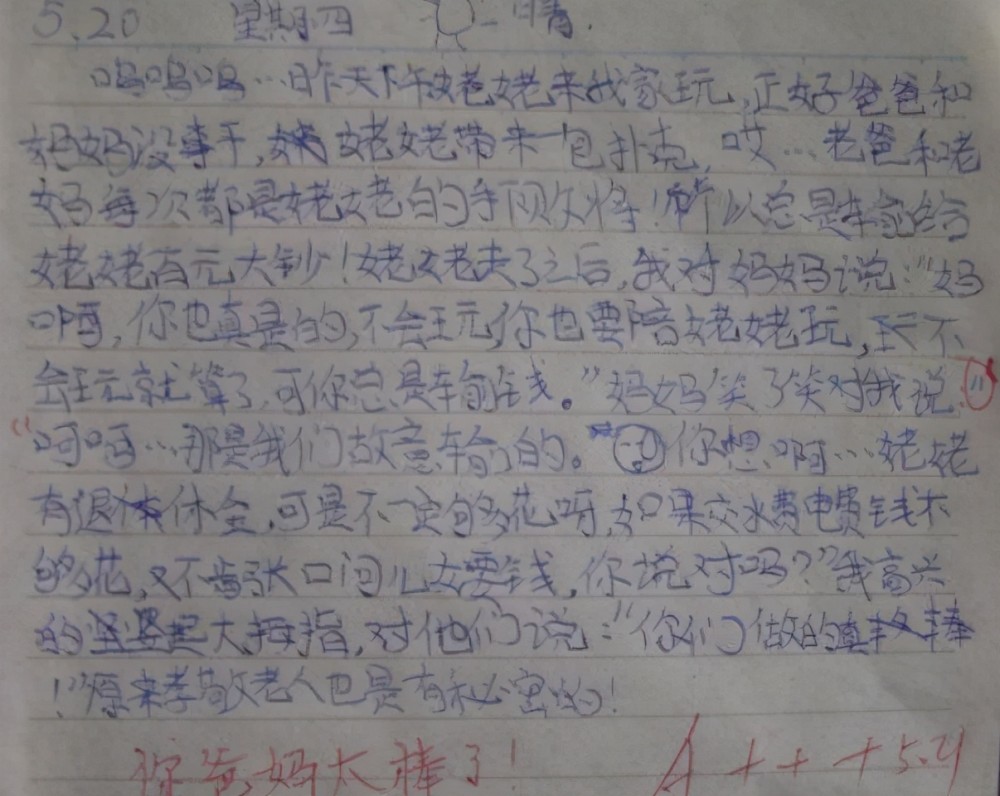 5.20 星期四 晴.
呜呜呜…昨天下午姥姥来我家玩,正好爸爸和
妈妈没事干,姥姥带来一包扑克,哎…老爸和老
妈每次都是姥姥的手下败将!所以总是输给
姥姥百元大钞!姥姥走了之后,我对妈妈说:"妈
啊,你也真是的,不会玩你也要陪姥姥玩,不
会玩就算了,可你总是输钱。"妈妈笑了笑对我说:"
"呵呵…那是我们故意输的。你想啊…姥姥
有退休金,可是不一定够花呀,如果交水费电费钱不
够花,又不肯张口问儿女要钱,你说对吗?"我高兴
的竖起大拇指,对他们说:"你们做的真棒
!"原来孝敬老人也是有秘密的!
你爸妈太棒了! A+++5.21